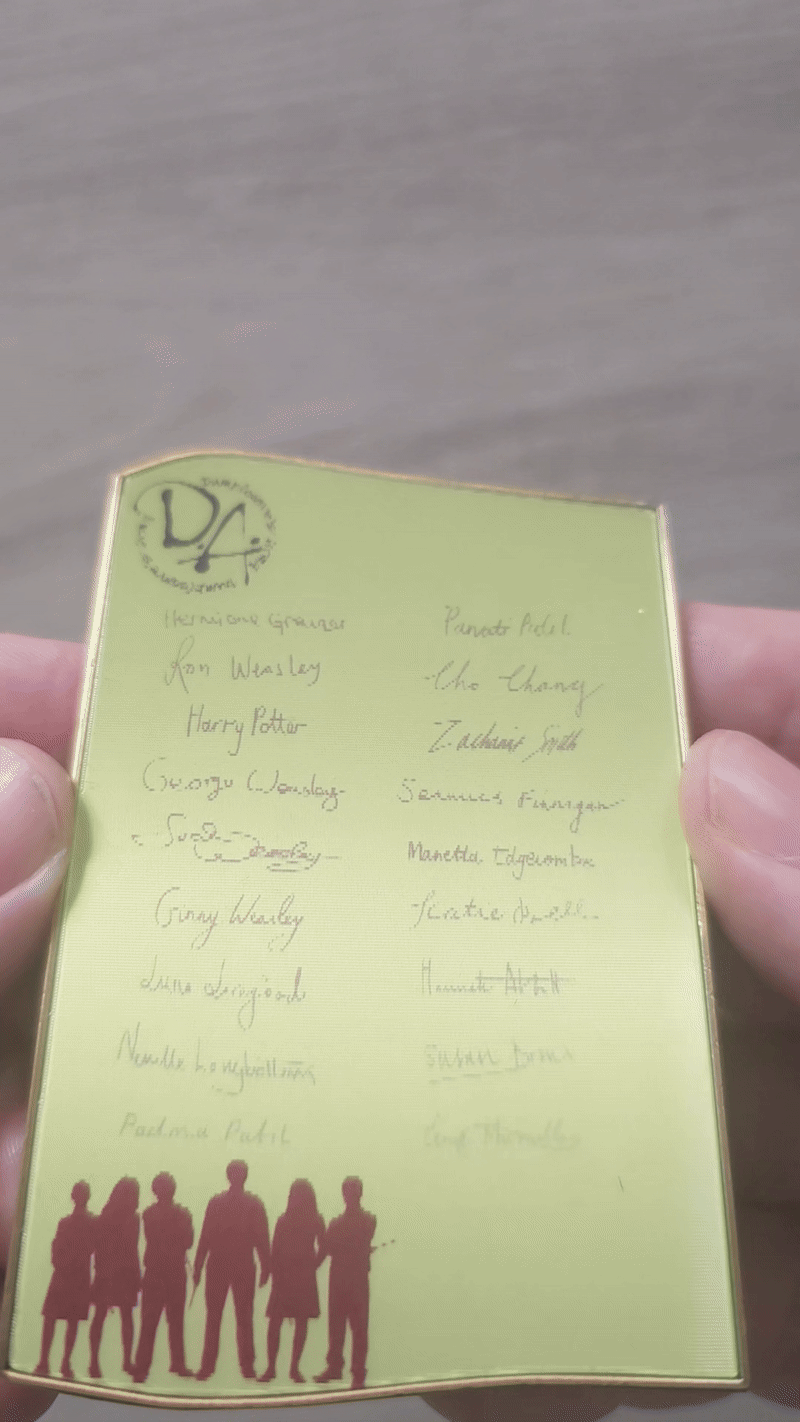 D.A.
Hermione Granger
Ron Weasley
Harry Potter
George Weasley
Weasley
Ginny Weasley
Luna Lovegood
Neville Longbottom
Padma Patil
Parvati Patil
Cho Chang
Zacharias Smith
Seamus Finnigan
Marietta Edgecombe
Katie Bell
Hannah Abbott
Susan Bones